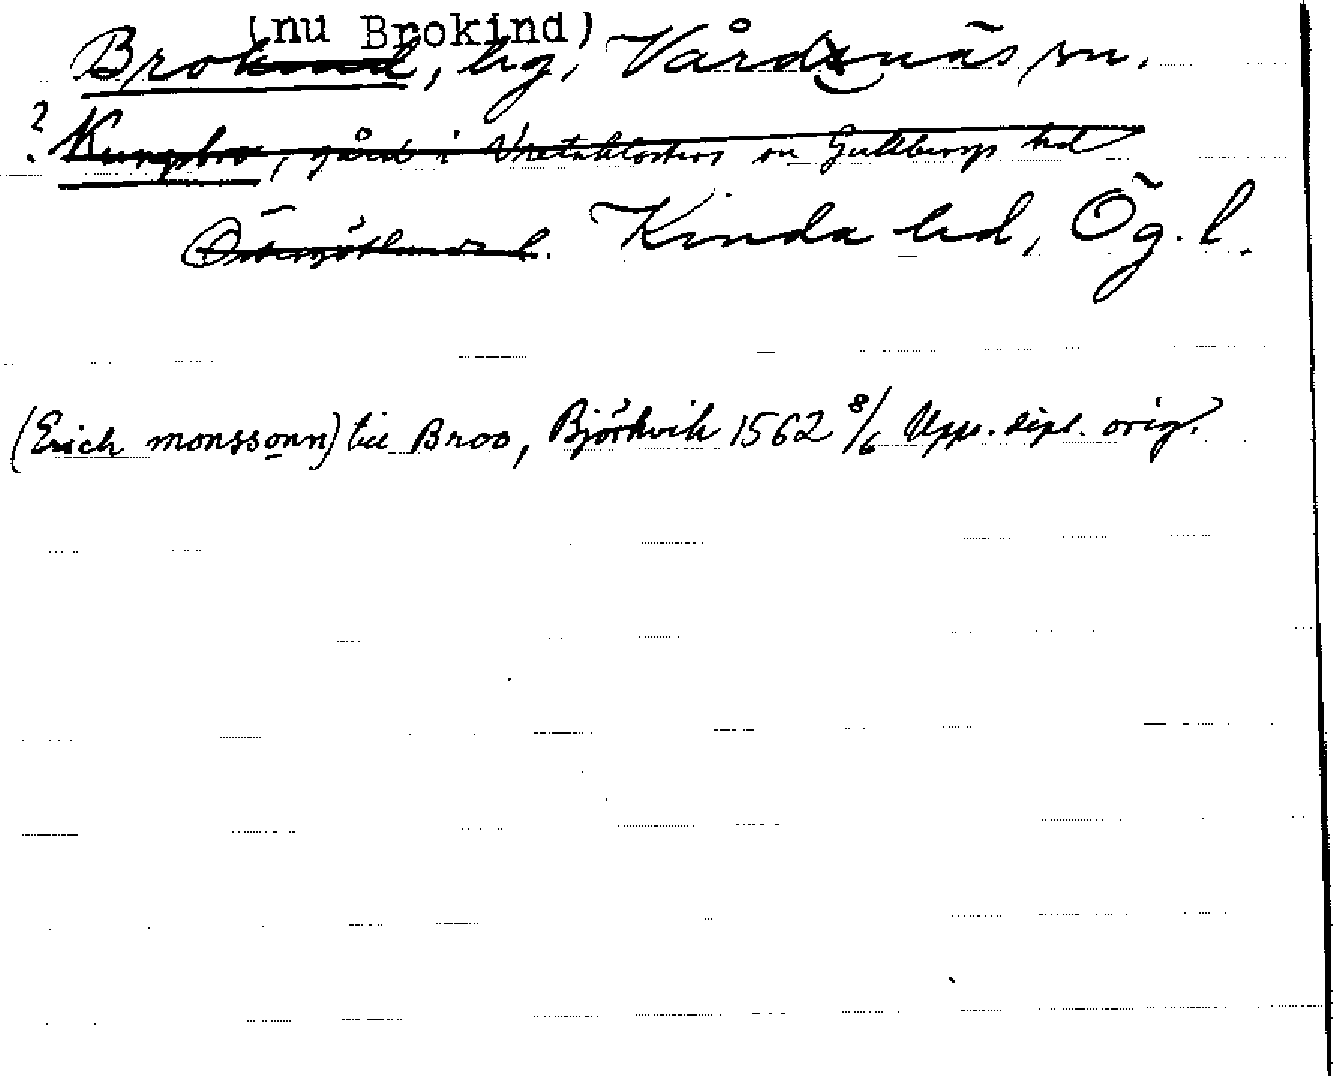 (nu Brokind)
Brokind, hg, Vårdsnäs sn.
? Kungsbro, gård i Vretaklosters sn Gullbergs hd
Östergötlands l. Kinda hd, Ög. l.
(Erich monssonn) till Broo, Björkvik 1562 8/6 Upps. dipl. orig.